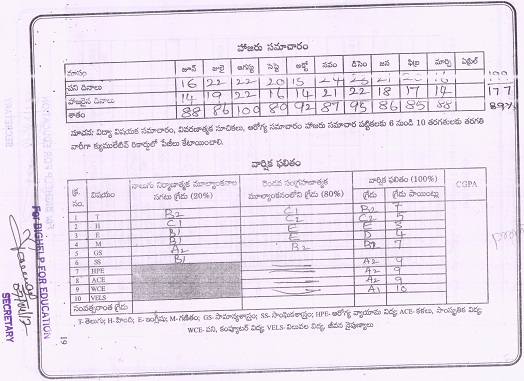 హాజరు సమాచారం
మాసం జూన్ జులై ఆగస్టు సెప్టె అక్టో నవం డిసెం జన ఫిబ్ర మార్చి ఏప్రిల్
పని దినాలు 16 22 22 20 15 24 23 21 20 16
హాజరైన దినాలు 14 19 22 16 14 21 22 18 17 14 177
శాతం 88 86 100 80 92 87 95 86 85 88 89%
సూచన: విద్యా విషయక సమాచారం, వివరణాత్మక సూచికలు, ఆరోగ్య సమాచారం హాజరు సమాచార పట్టికలకు 6 నుండి 10 తరగతులకు తరగతి
వారీగా క్యుములేటివ్ రికార్డులో పేజీలు కేటాయించాలి.
వార్షిక ఫలితం
క్ర. సం. విషయం నాలుగు నిర్మాణాత్మక మూల్యాంకనాల సగటు గ్రేడు (20%) రెండవ సంగ్రహణాత్మక మూల్యాంకనంలోని గ్రేడు (80%) వార్షిక ఫలితం (100%) CGPA
గ్రేడు గ్రేడు పాయింట్లు
1 T B2 C1 B2 7
2 H C1 C2 C2 5
3 E B1 E E 3
4 M B1 E D 4
5 GS A2 B2 B2 7
6 SS B1 A2 9
7 HPE A2 9
8 ACE A2 9
9 WCE A1 10
10 VELS
సంవత్సరాంత గ్రేడు
T-తెలుగు; H-హింది; E-ఇంగ్లీషు; M-గణితం; GS-సామాన్యశాస్త్రం; SS-సాంఘికశాస్త్రం; HPE-ఆరోగ్య వ్యాయామ విద్య; ACE-కళలు, సాంస్కృతిక విద్య;
WCE-పని, కంప్యూటర్ విద్య; VELS-విలువల విద్య, జీవన నైపుణ్యాలు
19
For BIGHELP FOR EDUCATION
SECRETARY